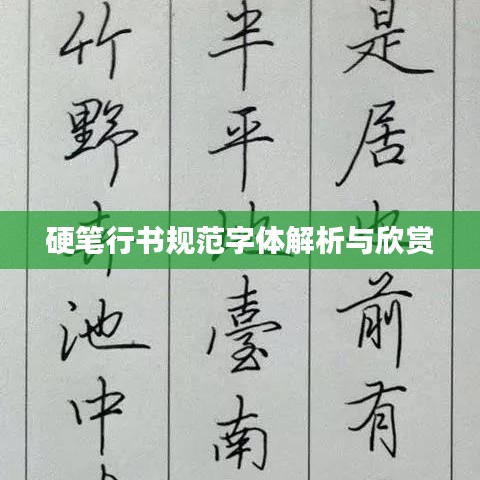 硬笔行书规范字体解析与欣赏
是居也前有
半平地臺南
竹野卉池中